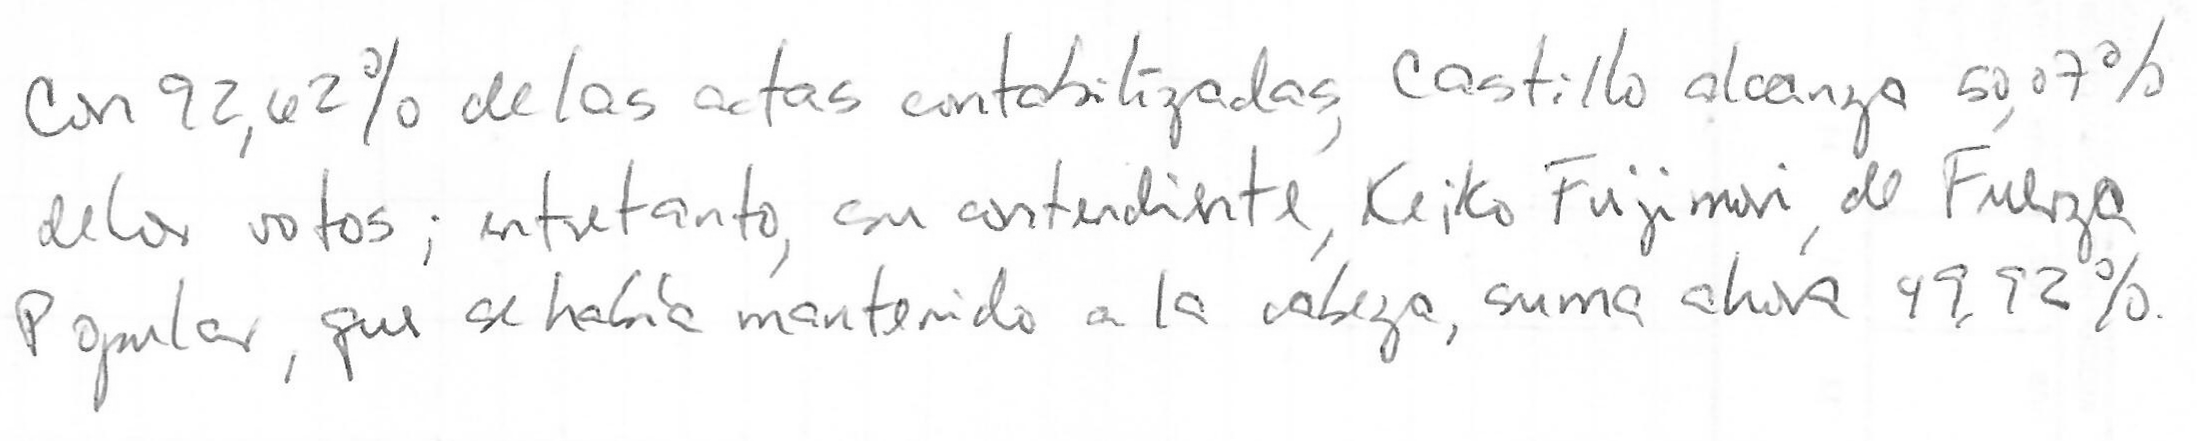 Con 92,62% de las actas contabilizadas, Castillo alcanza 50,07%
de los votos; entretanto, su contendiente, Keiko Fujimori, de Fuerza
Popular, que se había mantenido a la cabeza, suma ahora 49,92%.